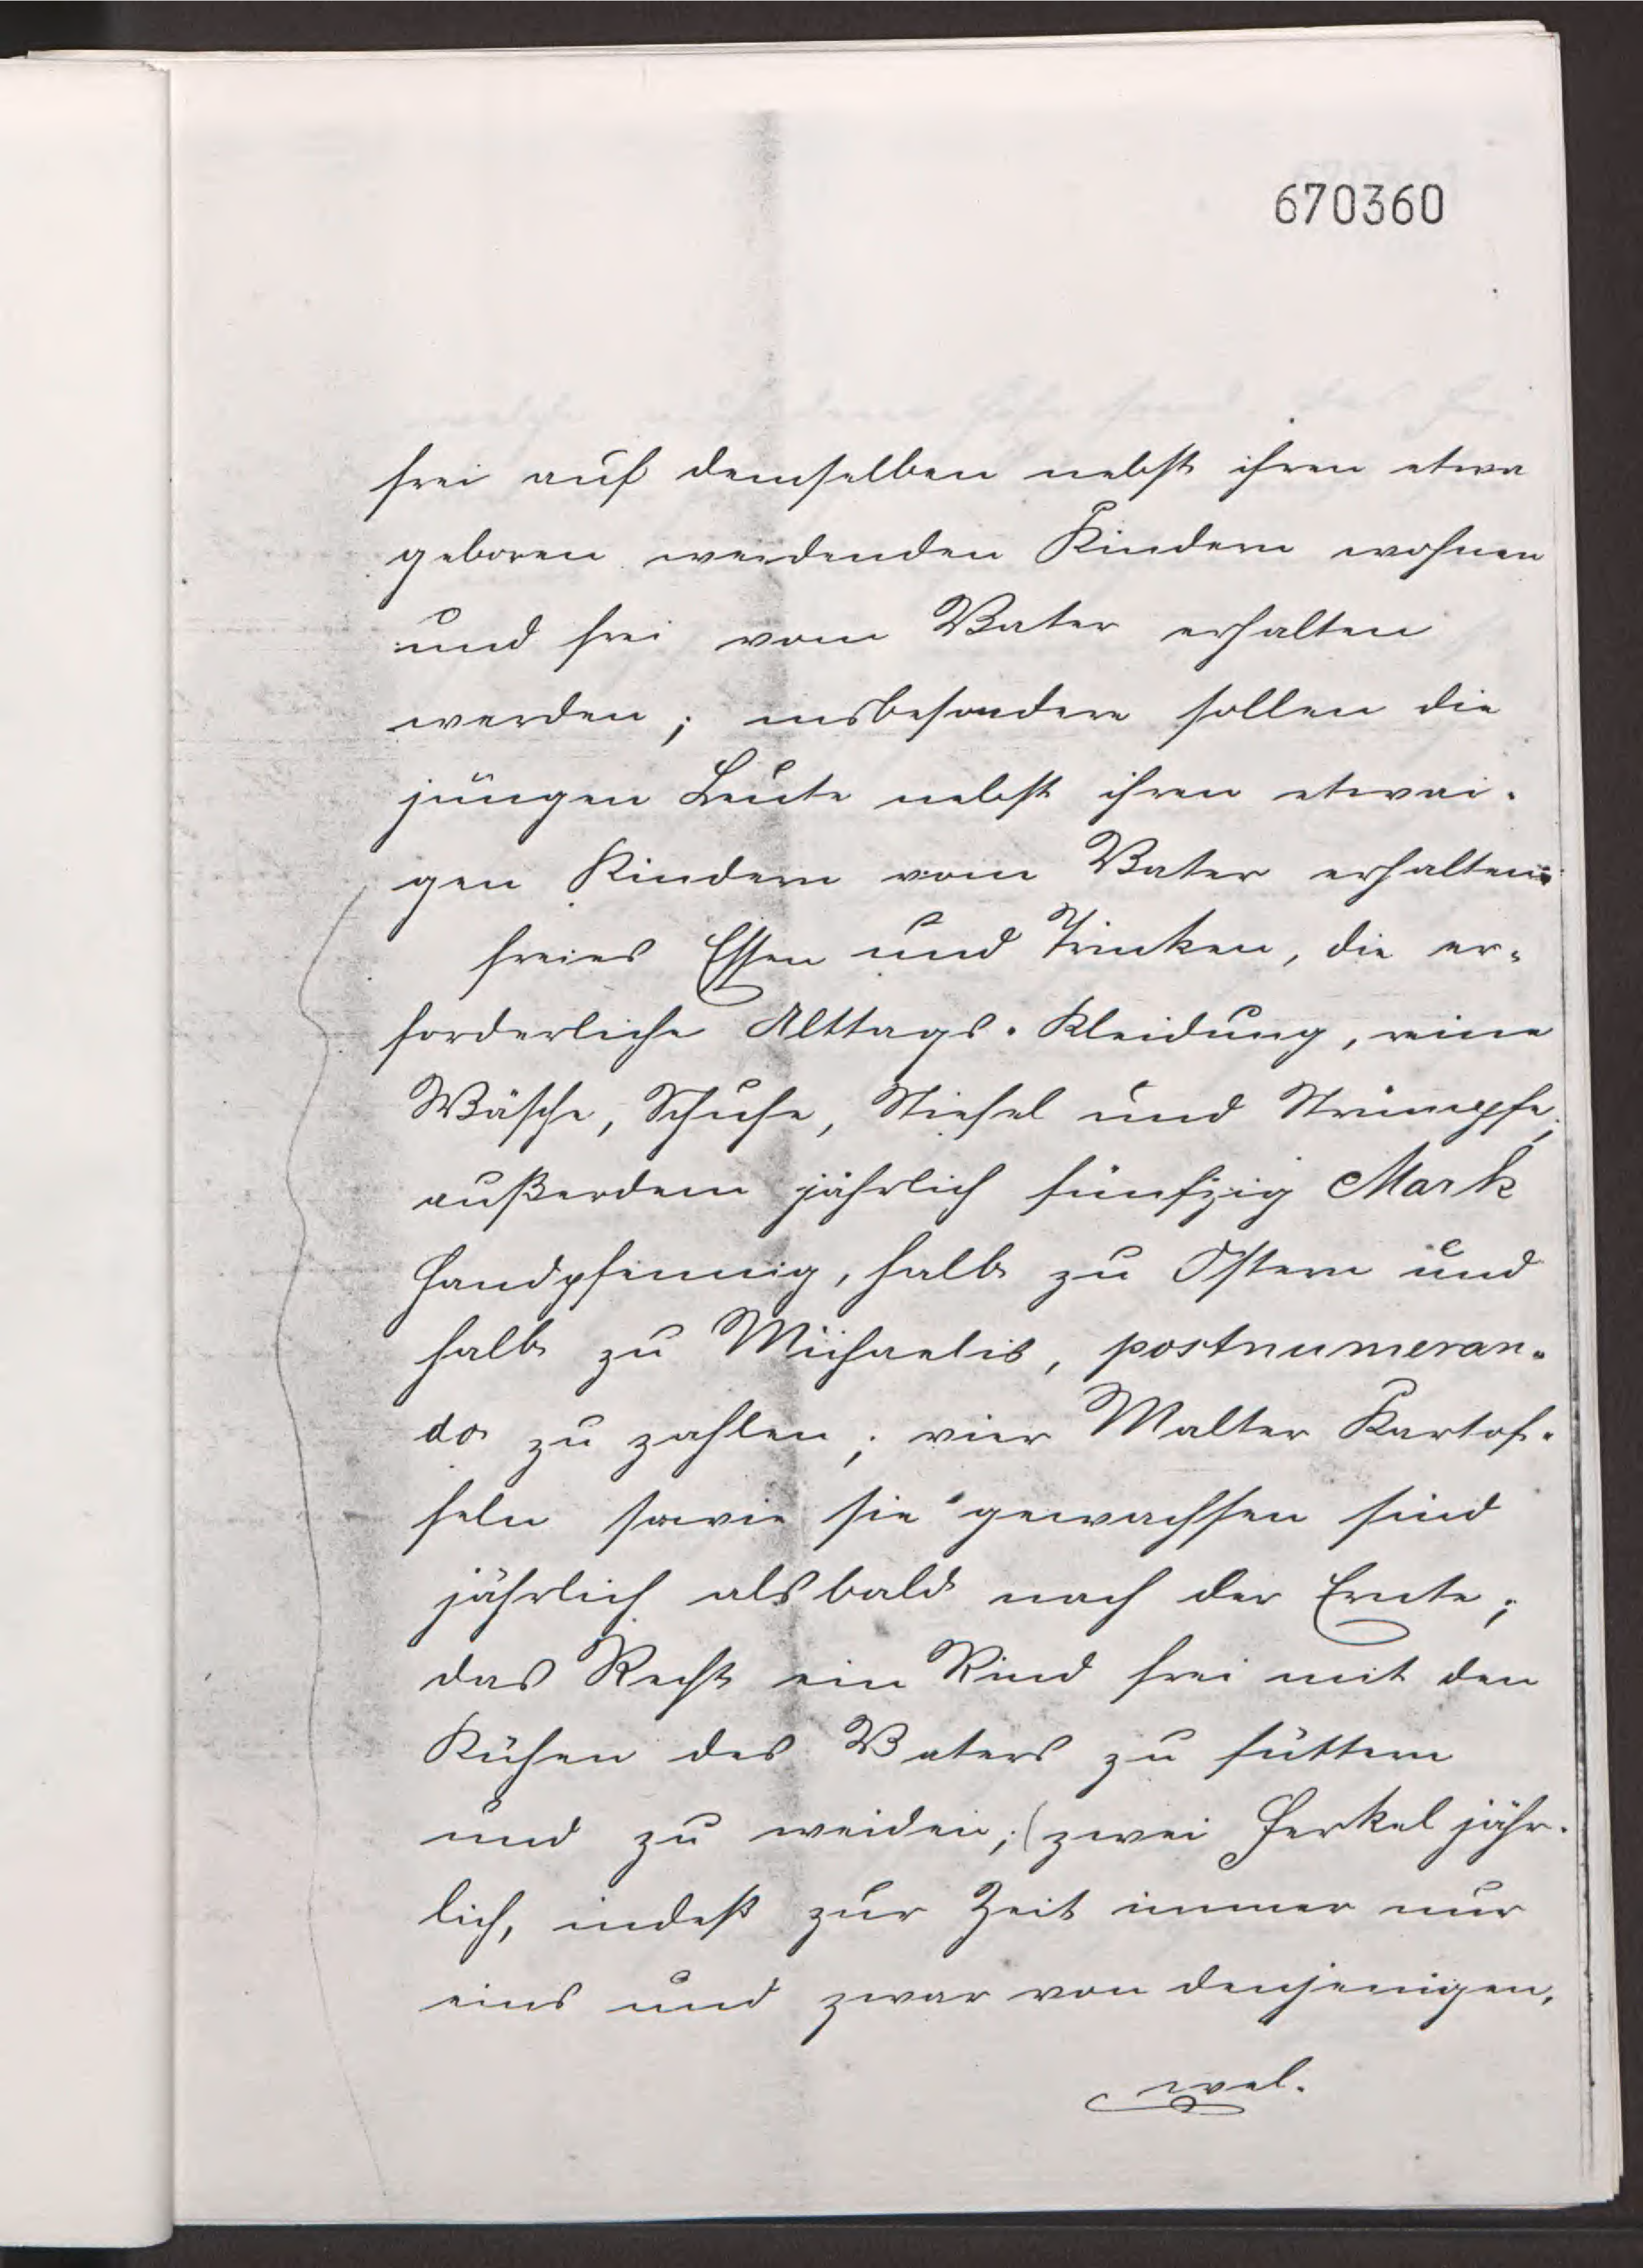 670360
frei auf demselben nebst ihren etwa
geboren werdenden Kindern wohnen
und frei vom Vater erhalten
werden; insbesondere sollen die
jungen Leute nebst ihren etwai-
gen Kindern vom Vater erhalten:
freies Essen und Trinken, die er-
forderliche Alltags-Kleidung, reine
Wäsche, Schuhe, Stiefel und Strümpfe,
außerdem jährlich fünfzig Mark
Handpfennig, halb zu Ostern und
halb zu Michaelis, postnumeran-
do zu zahlen; vier Malter Kartof-
feln sowie sie gewachsen sind
jährlich alsbald nach der Ernte;
das Recht ein Rind frei mit den
Kühen des Vaters zu füttern
und zu weiden; (zwei Ferkel jähr-
lich, indeß zur Zeit immer nur
eins und zwar von denjenigen,
wel-